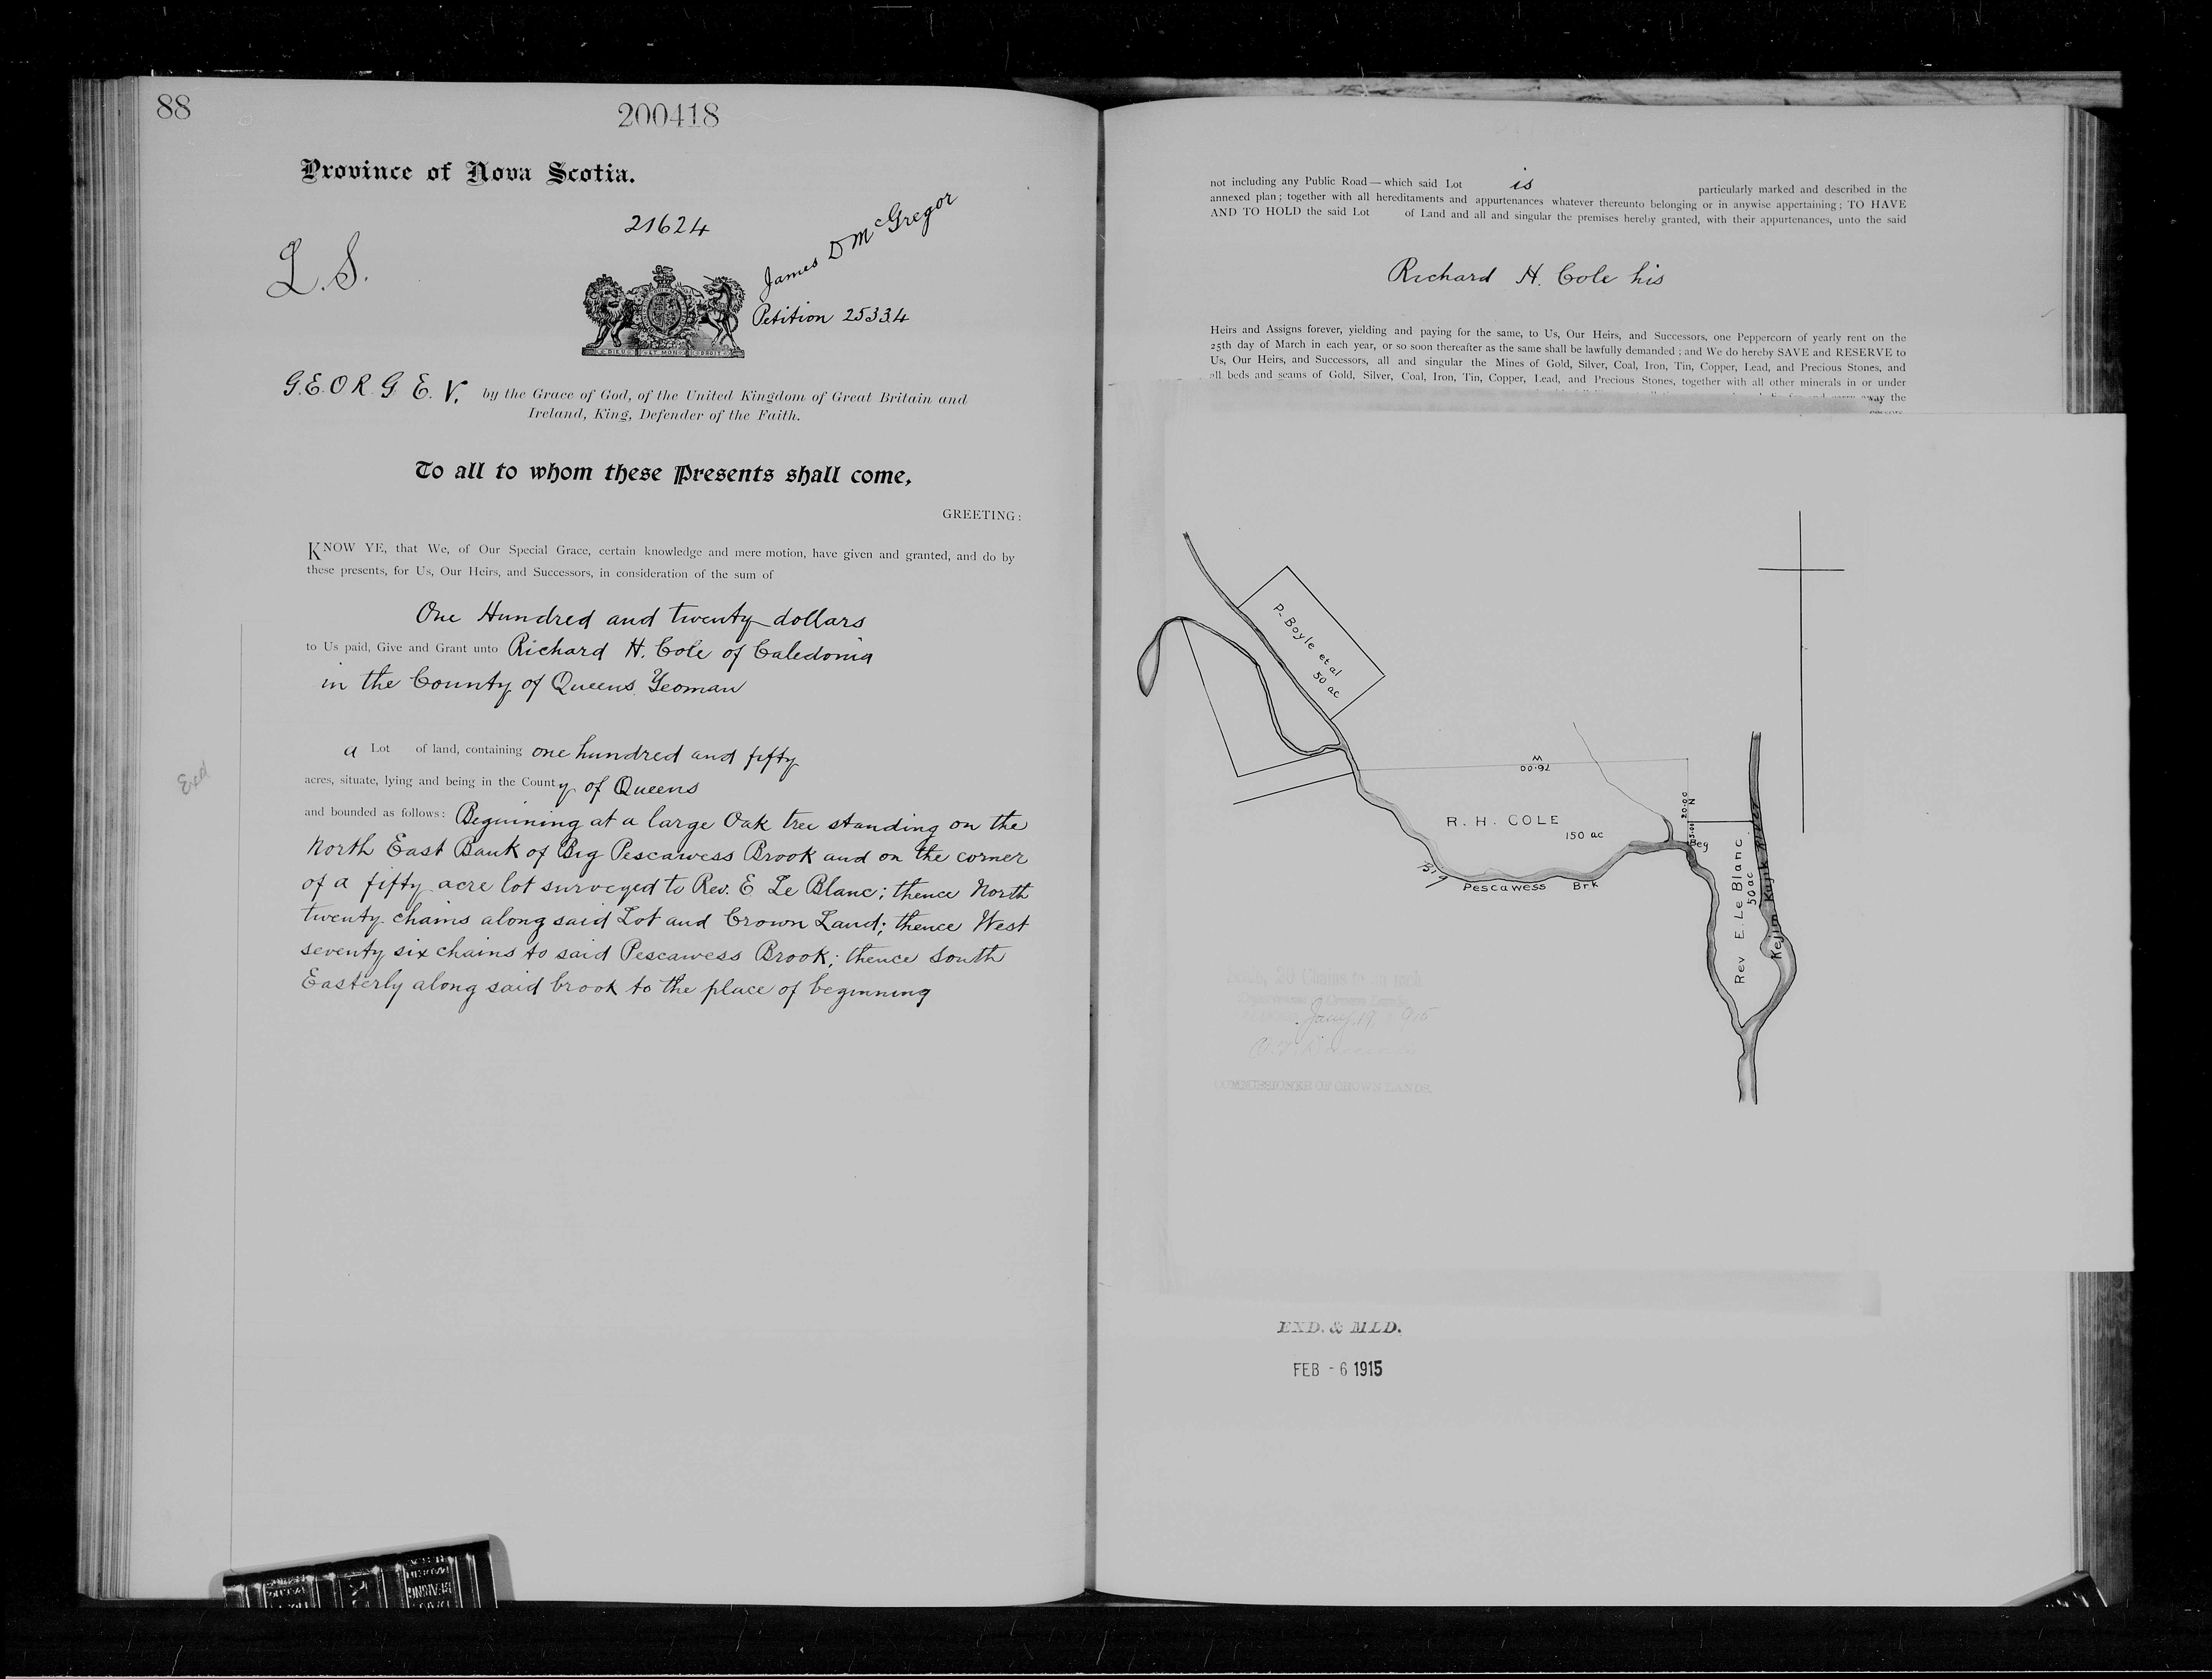 88
200418
Province of Nova Scotia.
21624
L.S.
James D McGregor
Petition 25334
DIEU ET MON DROIT
G.E.O.R.G.E. V. by the Grace of God, of the United Kingdom of Great Britain and
Ireland, King, Defender of the Faith.
To all to whom these Presents shall come,
GREETING:
KNOW YE, that We, of Our Special Grace, certain knowledge and mere motion, have given and granted, and do by
these presents, for Us, Our Heirs, and Successors, in consideration of the sum of
One Hundred and twenty dollars
to Us paid, Give and Grant unto Richard H. Cole of Caledonia
in the County of Queens Yeoman
a Lot of land, containing one hundred and fifty
Exd
acres, situate, lying and being in the County of Queens
and bounded as follows: Beginning at a large Oak tree standing on the
North East Bank of Big Pescawess Brook and on the corner
of a fifty acre lot surveyed to Rev. E Le Blanc; thence North
twenty chains along said Lot and Crown Land; thence West
seventy six chains to said Pescawess Brook; thence South
Easterly along said brook to the place of beginning
not including any Public Road — which said Lot is particularly marked and described in the
annexed plan; together with all hereditaments and appurtenances whatever thereunto belonging or in anywise appertaining; TO HAVE
AND TO HOLD the said Lot of Land and all and singular the premises hereby granted, with their appurtenances, unto the said
Richard H. Cole his
Heirs and Assigns forever, yielding and paying for the same, to Us, Our Heirs, and Successors, one Peppercorn of yearly rent on the
25th day of March in each year, or so soon thereafter as the same shall be lawfully demanded; and We do hereby SAVE and RESERVE to
Us, Our Heirs, and Successors, all and singular the Mines of Gold, Silver, Coal, Iron, Tin, Copper, Lead, and Precious Stones, and
all beds and seams of Gold, Silver, Coal, Iron, Tin, Copper, Lead, and Precious Stones, together with all other minerals in or under
away the
P. Boyle et al
50 ac
W
76.00
20.00
N
R. H. COLE
150 ac
5.00
Beg
Big Pescawess Brk
Rev E. Le Blanc
50 ac
Kejim Kujik River
20 Chains to an inch
Jany. 19 915
COMMISSIONER OF CROWN LANDS.
EXD. & MLD.
FEB - 6 1915